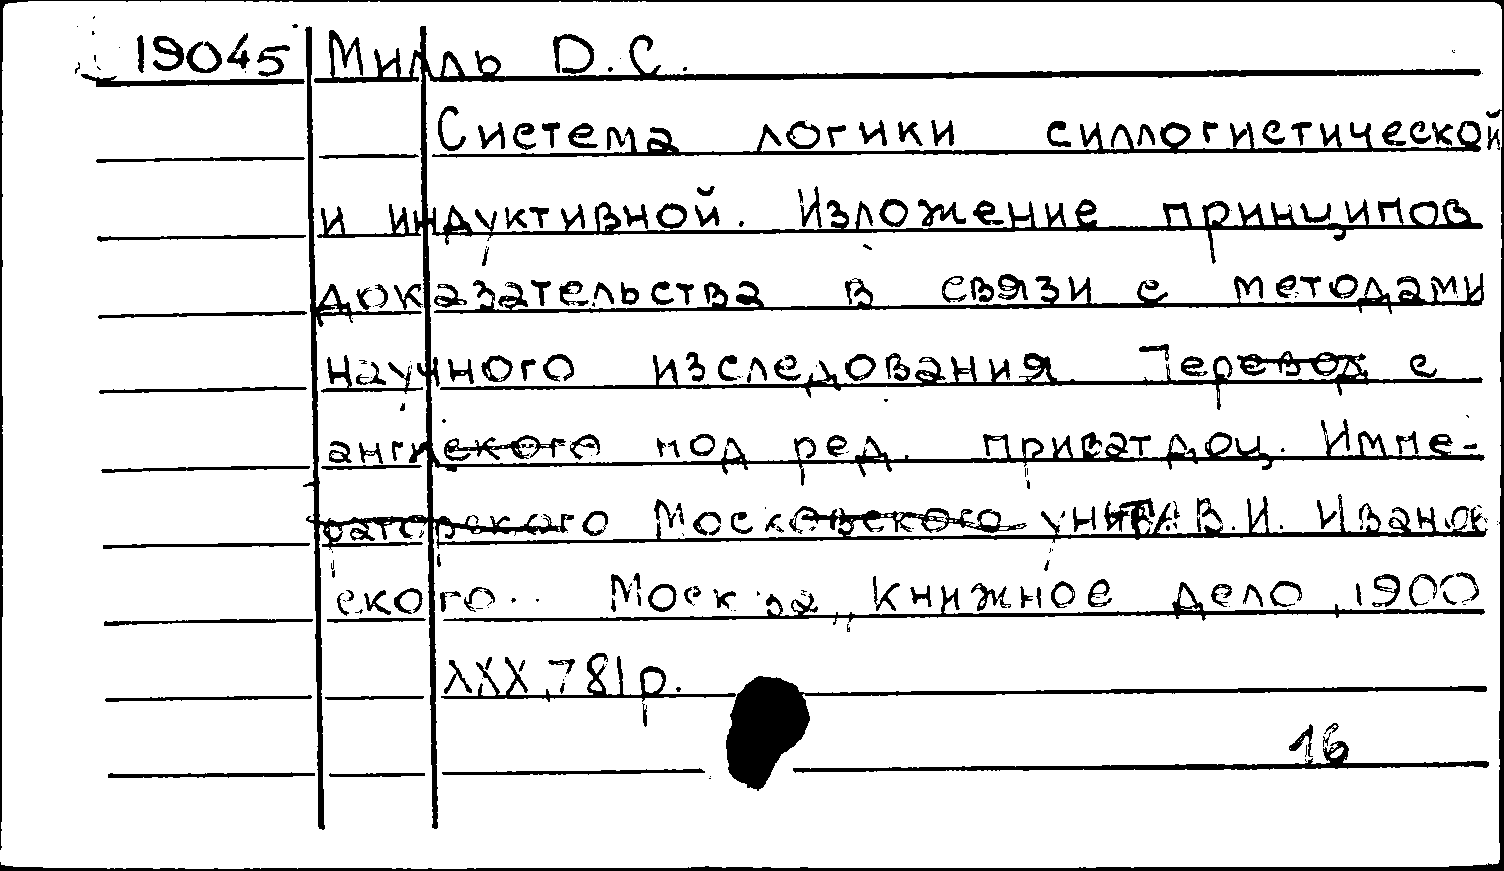 19045 Милль D. С.
Система логики силлогистической
и индуктивной. Изложение принципов
доказательства в связи с методами
научного изследования. Перевод с
английского под ред. приват доц. Импе-
раторского Московского унив-та В.И. Иванов
ского. Москва, „Книжное дело, 1900
XXX, 781 р.
16